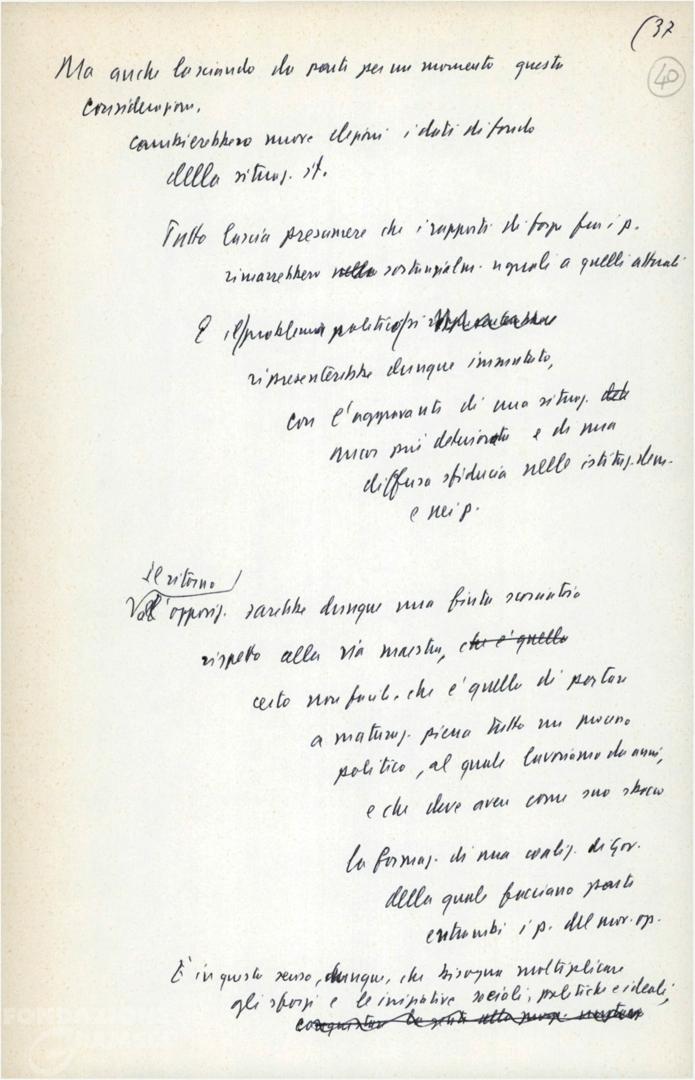 37
40
Ma anche lasciando da parte per un momento questa
considerazione,
cambierebbero nuove elezioni i dati di fondo
della situaz. it.
Tutto lascia presumere che i rapporti di forza fra i p.
rimarrebbero nella sostanzialm. uguali a quelli attuali
E il problema politico si
ripresenterebbe dunque immutato,
con l'aggravante di una situaz.
ancor più deteriorata e di una
diffusa sfiducia nelle istituz. dem.
e nei p.
Il ritorno
all'opposiz. sarebbe dunque una finta scorciatoia
rispetto alla via maestra, che è quella
certo non facile, che è quella di portare
a maturaz. piena tutto un processo
politico, al quale lavoriamo da anni,
e che deve avere come suo sbocco
la formaz. di una coaliz. di Gov.
della quale facciano parte
entrambi i p. del mov. op.
È in questo senso, dunque, che bisogna moltiplicare
gli sforzi e le iniziative sociali, politiche e ideali,